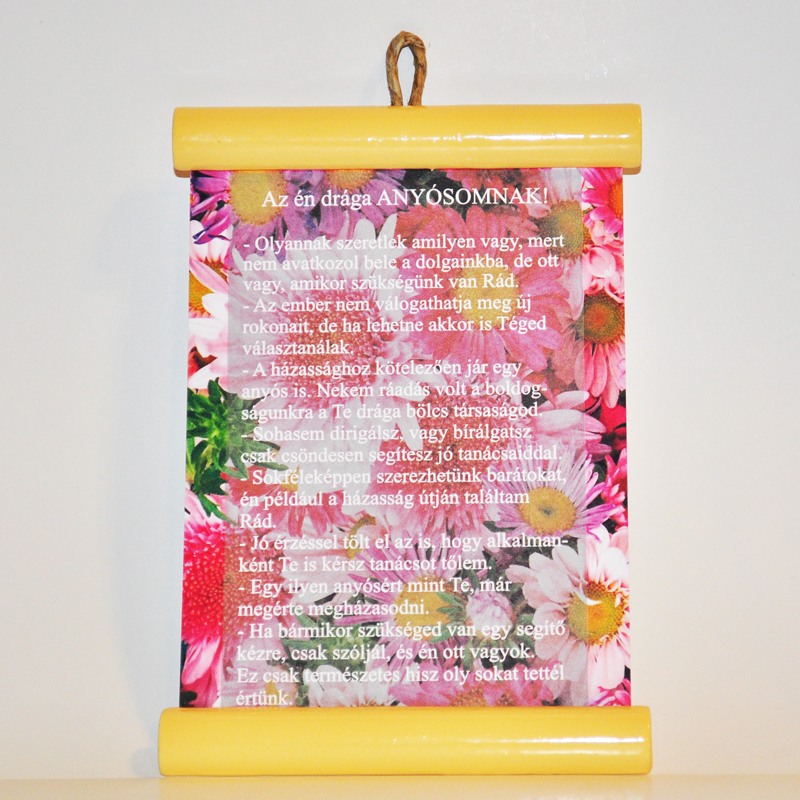 Az én drága ANYÓSOMNAK!
- Olyannak szeretlek amilyen vagy, mert
nem avatkozol bele a dolgainkba, de ott
vagy, amikor szükségünk van Rád.
- Az ember nem válogathatja meg új
rokonait, de ha lehetne akkor is Téged
választanálak.
- A házassághoz kötelezően jár egy
anyós is. Nekem ráadás volt a boldog-
ságunkra a Te drága bölcs társaságod.
- Sohasem dirigálsz, vagy bírálgatsz
csak csöndesen segítesz jó tanácsaiddal.
- Sokféleképpen szerezhetünk barátokat,
én például a házasság útján találtam
Rád.
- Jó érzéssel tölt el az is, hogy alkalman-
ként Te is kérsz tanácsot tőlem.
- Egy ilyen anyósért mint Te, már
megérte megházasodni.
- Ha bármikor szükséged van egy segítő
kézre, csak szóljál, és én ott vagyok.
Ez csak természetes hisz oly sokat tettél
értünk.